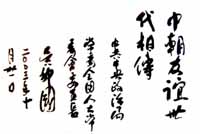 中朝友誼世
代相傳
中共中央政治局
常委全国人大常
委会委员长
吴邦国
二〇〇三年十
月 日